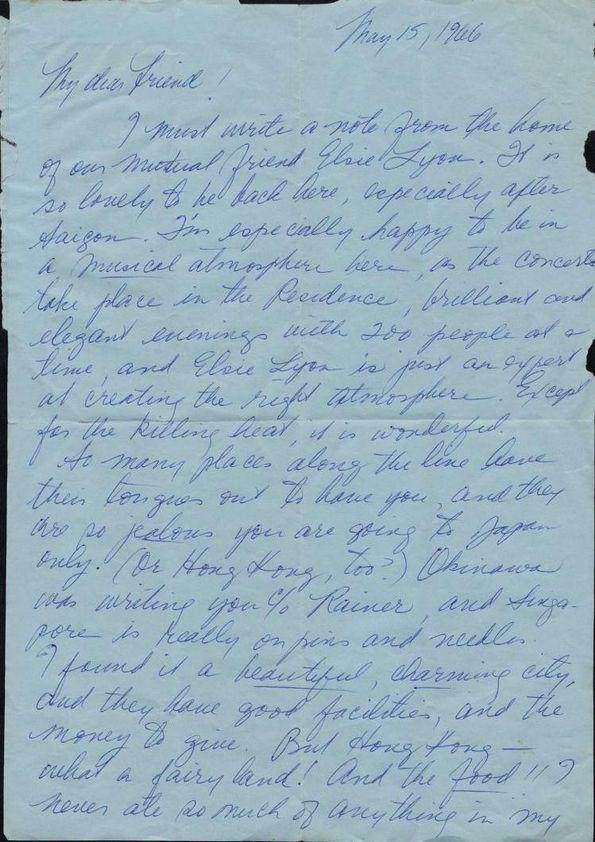 May 15, 1966
My dear friend!
I must write a note from the home
of our mutual friend Elsie Lyon. It is
so lovely to be back here, especially after
Saigon. I'm especially happy to be in
a musical atmosphere here, as the concerts
take place in the Residence, brilliant and
elegant evenings with 200 people at a
time, and Elsie Lyon is just an expert
at creating the right atmosphere. Except
for the killing heat, it is wonderful.
So many places along the line have
their tongues out to have you, and they
are so jealous you are going to Japan
only. (Or Hong Kong, too?) Okinawa
was writing you c/o Rainer, and Singa-
pore is really on pins and needles.
I found it a beautiful, charming city,
and they have good facilities, and the
money to give. But Hong Kong —
what a fairy land! And the food!! I
never ate so much of anything in my